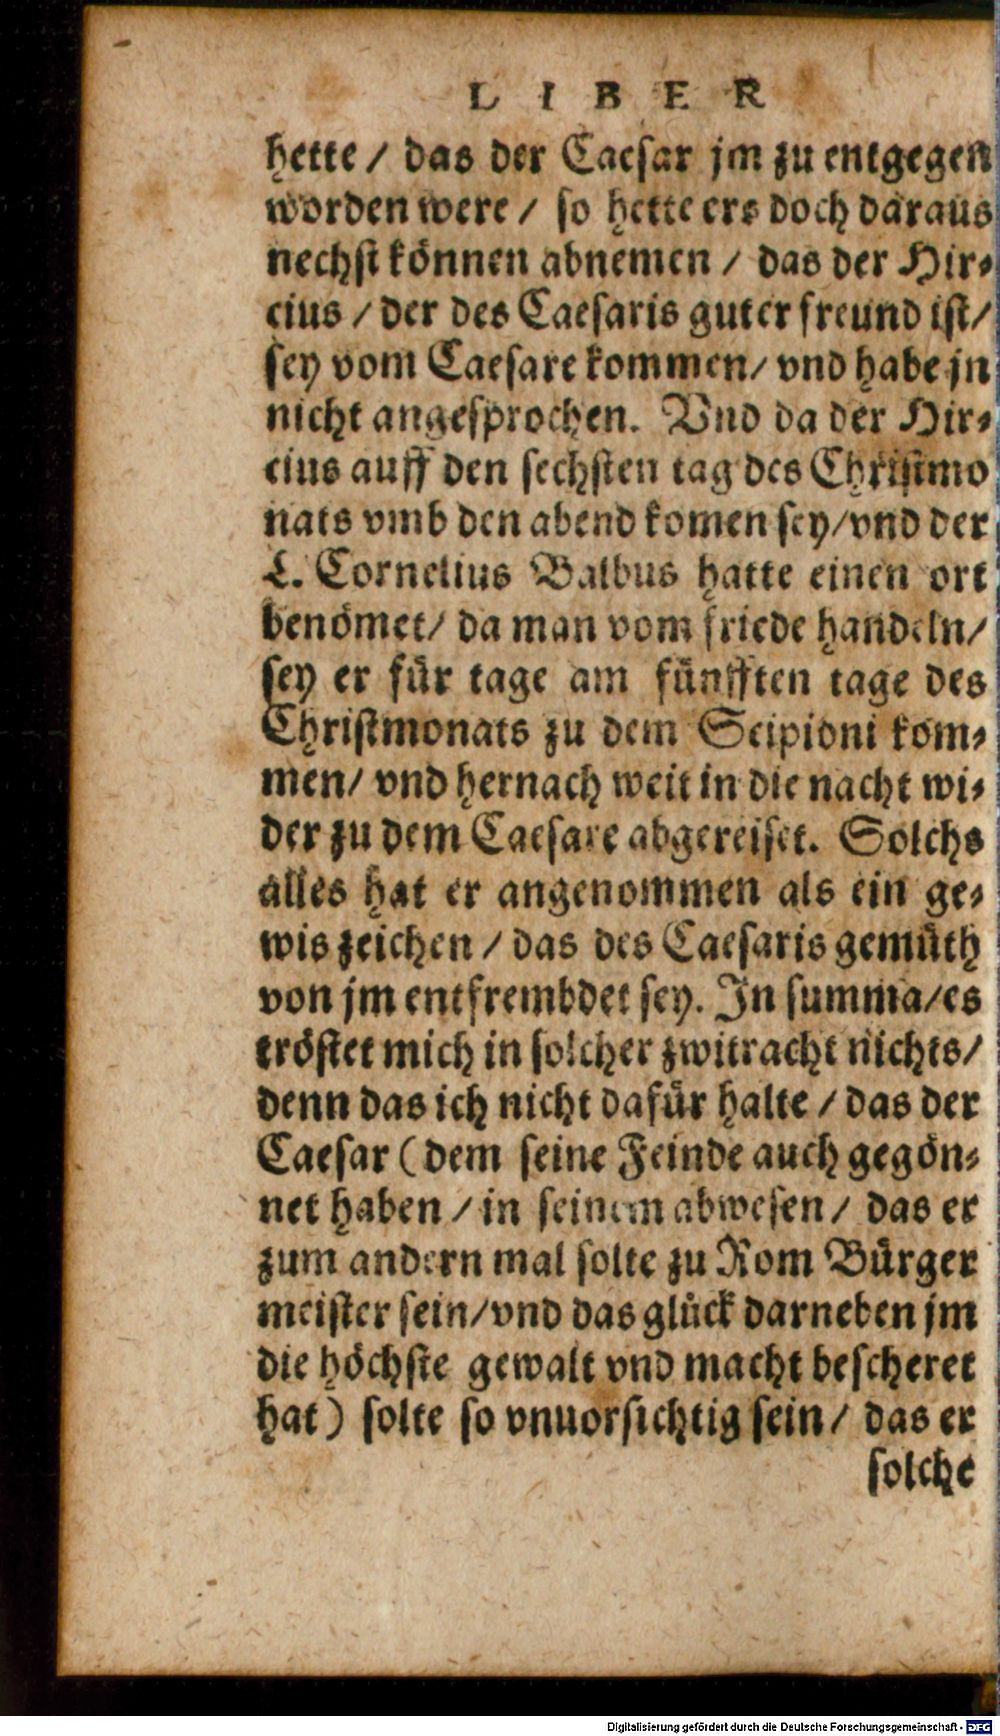 LIBER
hette / das der Caesar jm zu entgegen
worden were / so hette ers doch daraus
nechst können abnemen / das der Hir⸗
cius / der des Caesaris guter freund ist/
sey vom Caesare kommen/ vnd habe jn
nicht angesprochen. Vnd da der Hir⸗
cius auff den sechsten tag des Christmo
nats vmb den abend komen sey/vnd der
L. Cornelius Balbus hatte einen ort
benömet/ da man vom friede handeln/
sey er für tage am fünfften tage des
Christmonats zu dem Scipioni kom⸗
men/ vnd hernach weit in die nacht wi⸗
der zu dem Caesare abgereiset. Solchs
alles hat er angenommen als ein ge⸗
wis zeichen / das des Caesaris gemüth
von jm entfrembdet sey. In summa/es
tröstet mich in solcher zwitracht nichts/
denn das ich nicht dafür halte / das der
Caesar (dem seine Feinde auch gegön⸗
net haben / in seinem abwesen / das er
zum andern mal solte zu Rom Bürger
meister sein/vnd das glück darneben jm
die höchste gewalt vnd macht bescheret
hat) solte so vnuorsichtig sein / das er
solche
Digitalisierung gefördert durch die Deutsche Forschungsgemeinschaft - DFG